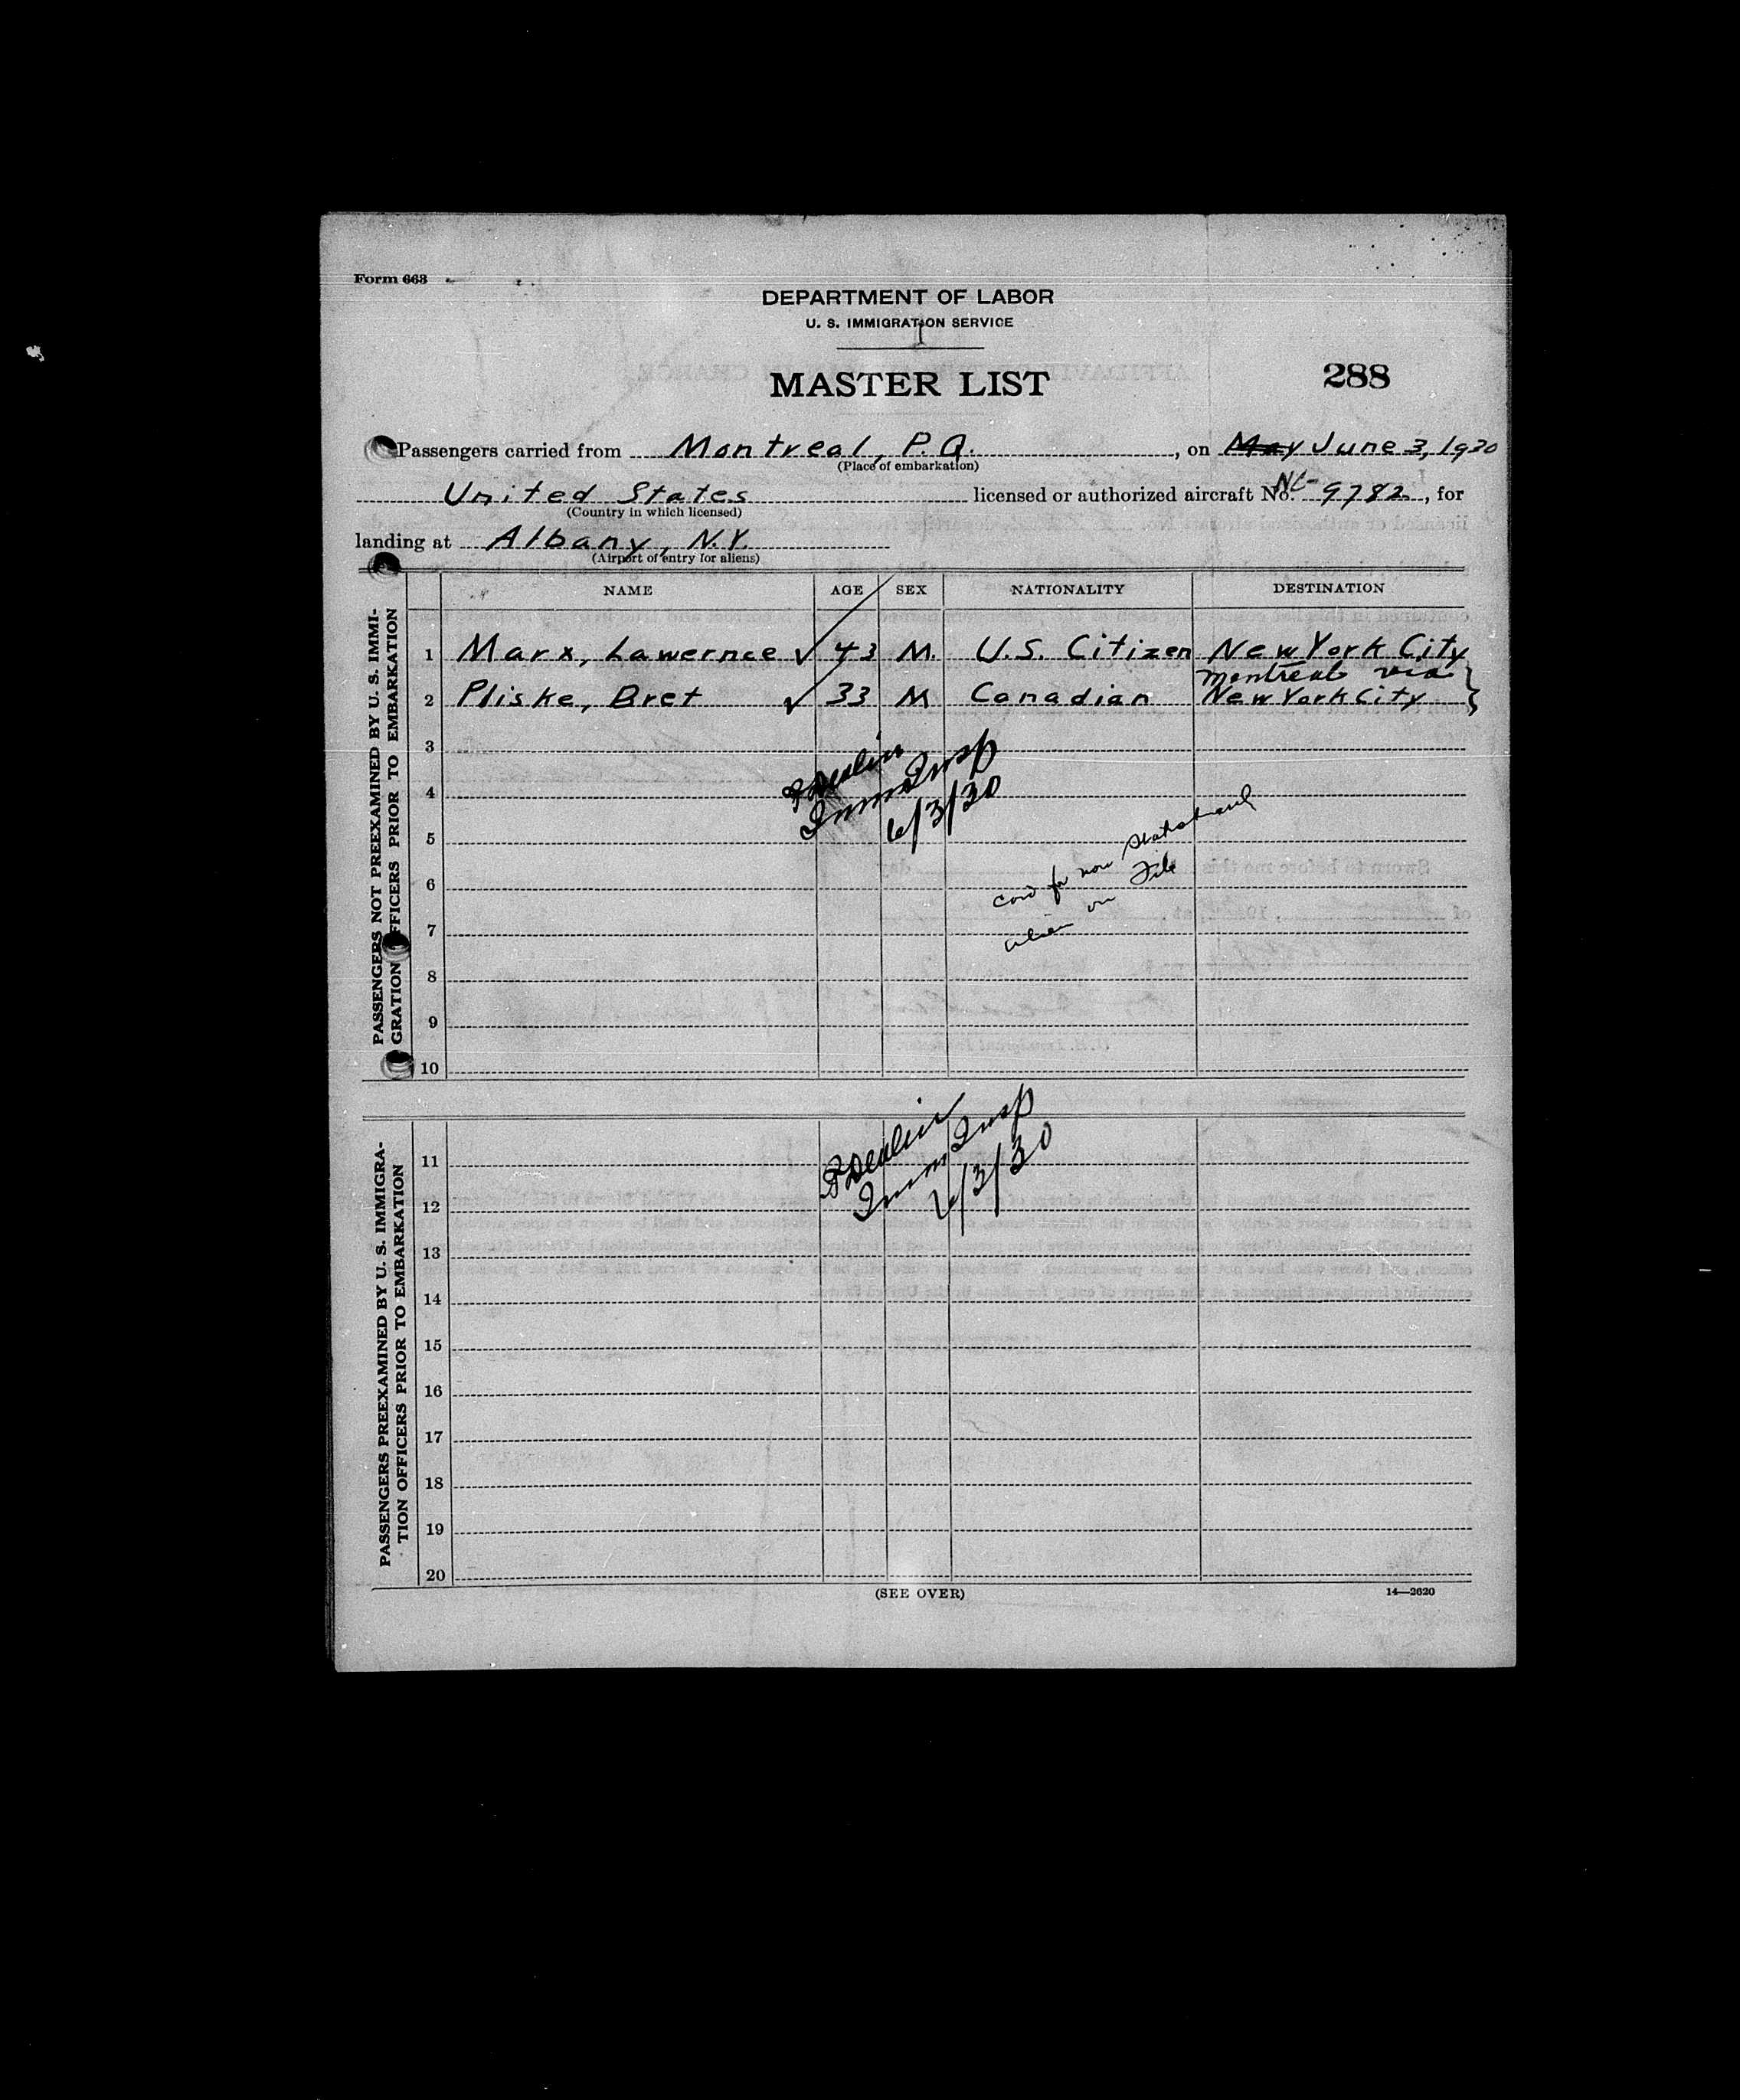 Form 663
DEPARTMENT OF LABOR
U. S. IMMIGRATION SERVICE
MASTER LIST
288
Passengers carried from Montreal, P.Q. , on May June 3, 1930
(Place of embarkation)
United States licensed or authorized aircraft No. NC- 9782 , for
(Country in which licensed)
landing at Albany, N.Y.
(Airport of entry for aliens)
PASSENGERS NOT PREEXAMINED BY U. S. IMMI-
GRATION OFFICERS PRIOR TO EMBARKATION
NAME AGE SEX NATIONALITY DESTINATION
1 Marx, Lawernce ✓ 43 M. U.S. Citizen New York City
Montreal via
2 Pliske, Bret ✓ 33 M Canadian New York City }
3
4
Imm Insp
6/3/30
5
6
card for non statistical
alien on File
7
8
9
10
PASSENGERS PREEXAMINED BY U. S. IMMIGRA-
TION OFFICERS PRIOR TO EMBARKATION
11
Imm Insp
6/3/30
12
13
14
15
16
17
18
19
20
(SEE OVER)
14—2620